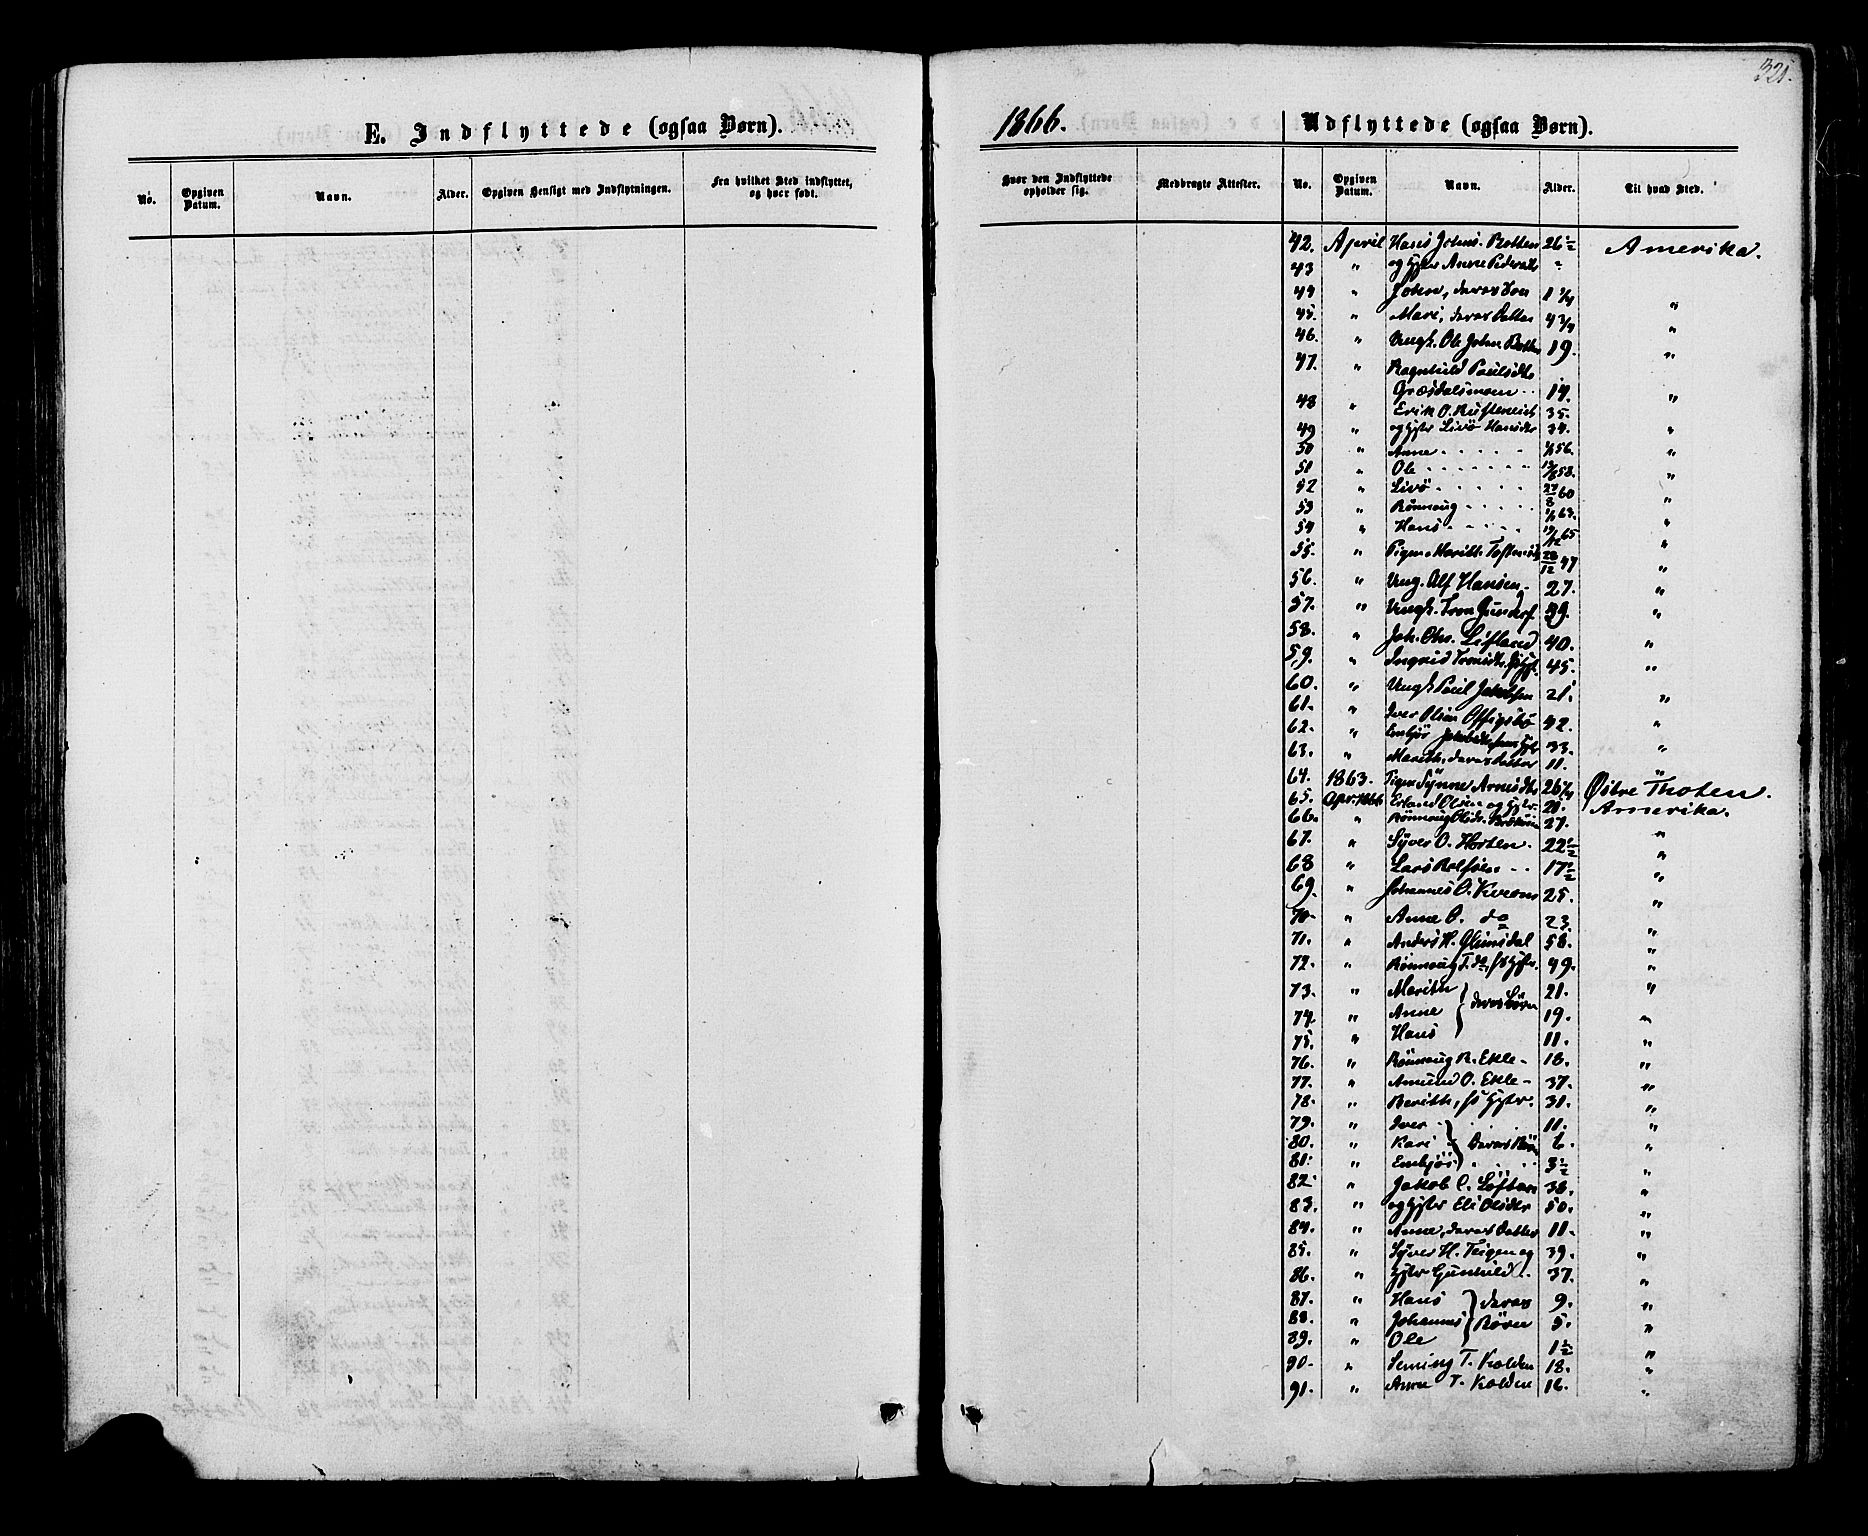 321.
E. Indflyttede (ogsaa Børn).
1866.
Udflyttede (ogsaa Børn).
No. Opgiven Datum. Navn. Alder. Opgiven Hensigt med Indflytningen. Fra hvilket Sted indflyttet, og hvor født.
Hvor den Indflyttede opholder sig. Medbragte Attester. No. Opgiven Datum. Navn. Alder. Til hvad Sted.
42. April Hans Johns. Rotten 26½ Amerika.
43 " og Hstr Anne Pedersdtr "
44 " John, deres Søn 1¼ "
45. " Mari, deres Datter 4¾ "
46. " Ungk. Ole Johns. 19. "
47. " Ragnhild Paulsdtr
Græsdalsmoen 14. "
48 " Erik O. 35.
49 " og Hstr Livø Hansdtr 34. "
50 " Anne 56. "
51 " Ole 58. "
52 " Livø 27/8 60 "
53 " Rønnaug 63. "
54 " Hans 65 "
55. " Pigen Marith 28/12 47 "
56. " Ung. Alf Hansen 27. "
57. " Ungk. Tron "
58. " Joh. Ohs. 40. "
59. " Ingrid Tronsdtr 45. "
60. " Ungk Paul Jakobsen 21. "
61. " Iver Olsen 42. "
62. " Embjør 33. "
63. " Marith, deres Datter 11. "
64. 1863. Pigen Synne Arnesdtr 26¼ Østre Thoten.
65. Apr. 1866 Erland Olsen og Hstr. 28. Amerika.
66. " Rønnaug Olsdr. 27. "
67. " Syver O. Horten 22½ "
68 " Lars Rolfsen 17½ "
69. " Johannes O. Kveom 25. "
70 " Anne O. do 23. "
71. " Anders H. Glimsdal 56. "
72. " Rønnaug T. do, hs Hstr. 49. "
73. " Marith } deres Børn 21. "
74 " Anne 19. "
75. " Hans 11. "
76. " Rønnaug R. Ekle 18. "
77. " Amund O. Ekle 37. "
78. " Berith, hs Hstr. 31. "
79. " Iver 11. "
80. " Kari } Deres Børn 6. "
81. " Embjør 3½ "
82. " Jakob C. 38. "
83. " og Hstr Eli Olsdtr 50. "
84. " Anne, deres Datter 11. "
85. " Syver H. Teigen og 39. "
86. " Hstr Gunhild 37. "
87. " Hans } deres 9. "
88. " Johannes Børn 5. "
89. " Ole 1½ "
90. " Seming T. Kolden 18. "
91. " Anne T. Kolden 16. "